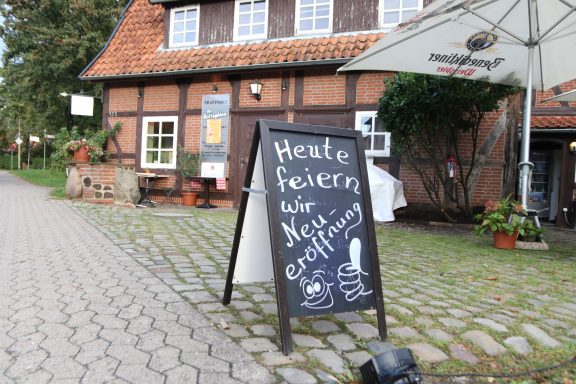 Heute
feiern
wir
Neu-
eröffnung
Benediktiner
Weissbier
TRATTORIA